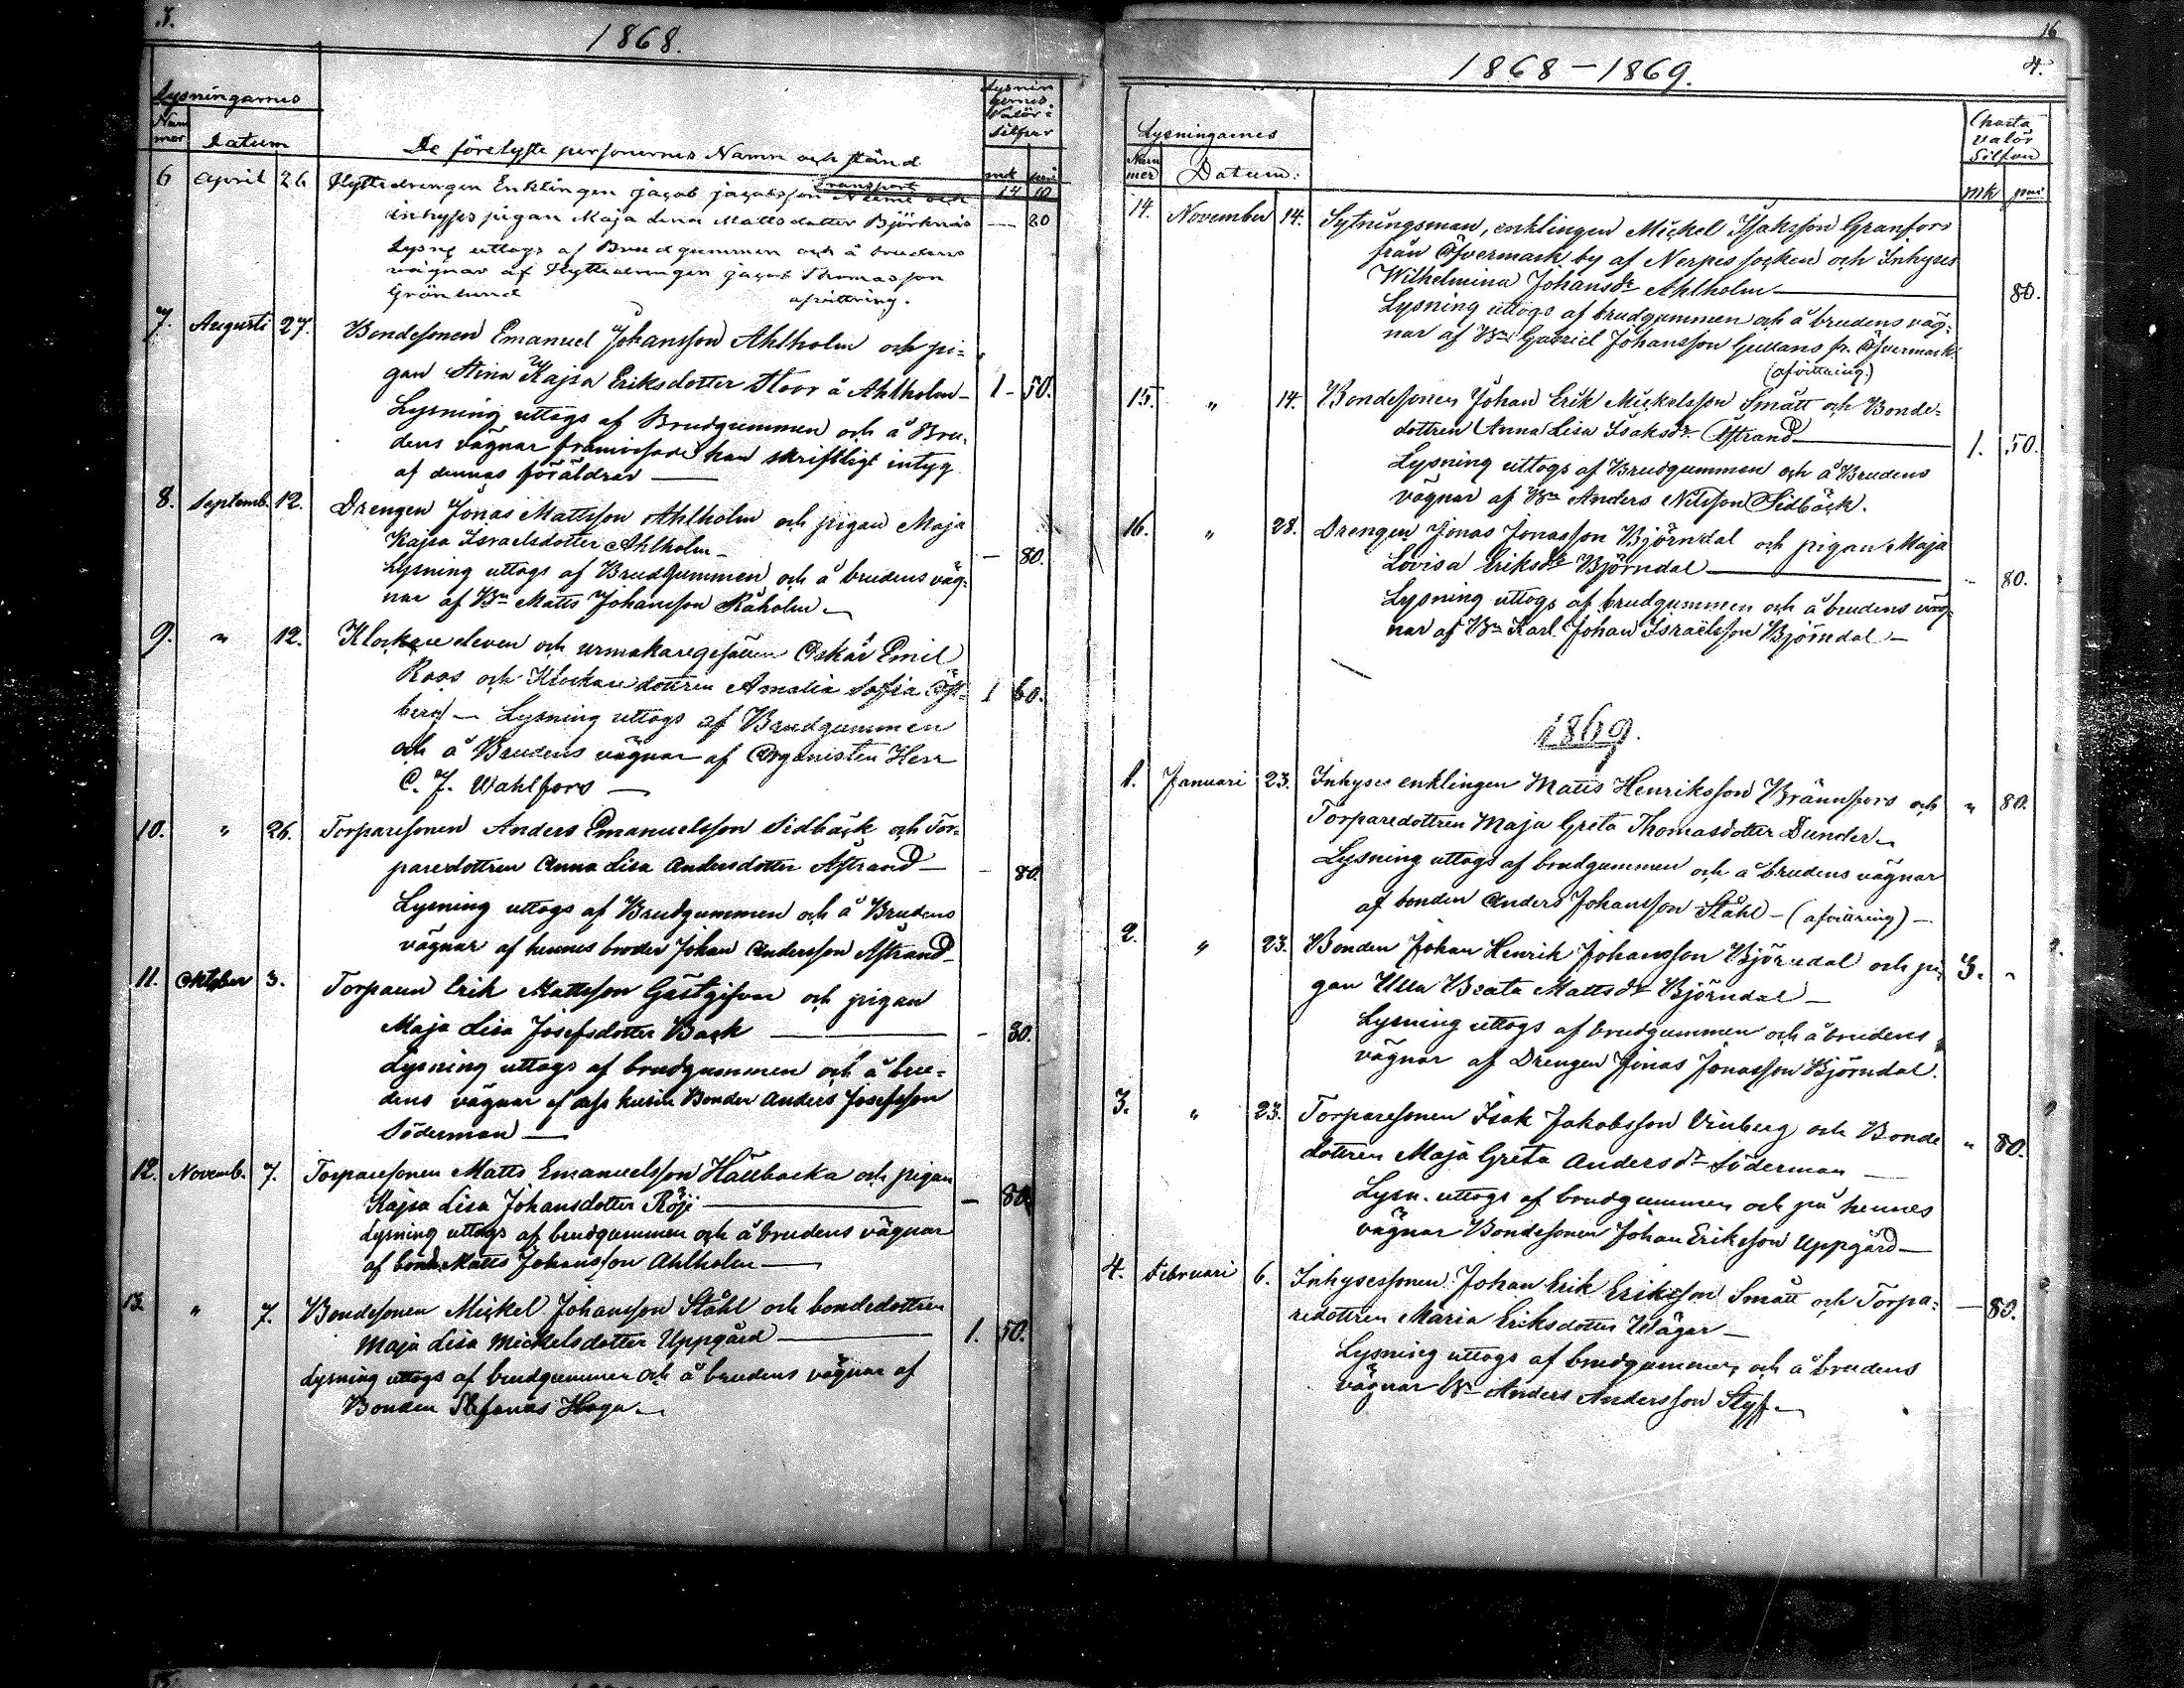 3.
1868.
Lysningarnes
Num
mer
Datum
De förelyste personernes Namn och stånd
Lysnin
garnes
Valör
silfver
mk
Transport
14 10
6 April 26 enklingen Jacob Jacobsson och
inhyses pigan Maja Lena Mattsdotter Björknäs — 80
Lysng uttogs af Brudgummen och å brudens
vägnar af Jacob Thomasson
Grönlund afvittring.
7. Augusti 27. Bondesonen Emanuel Johansson Ahlholm och pi-
gan Stina Kajsa Eriksdotter Stoor å Ahlholm — 1 - 50.
Lysning uttogs af Brudgummen och å Bru-
dens vägnar framvisade han skriftligt intyg
af dennas föräldrar —
8. Septemb. 12. Drengen Jonas Mattsson Ahlholm och pigan Maja
Kajsa Israelsdotter Ahlholm — — 80.
Lysning uttogs af Brudgummen och å brudens väg-
nar af Bn Matts Johansson Råholm —
9. " 12. Klockare eleven och urmakaregesällen Oskar Emil
Roos och Klockaredottren Amalia Sofia Öst-
1 60.
berg — Lysning uttogs af Brudgummen
och å Brudens vägnar af Organisten Herr
C. J. Wahlfors —
10. " 26. Torparesonen Anders Emanuelsson Sidbäck och Tor-
paredottren Anna Lisa Andersdotter Åstrand — - 80.
Lysning uttogs af Brudgummen och å Brudens
vägnar af hennes broder Johan Andersson Åstrand —
11. Oktober 3. Torparen Erik Mattsson Gästgifvar och pigan
Maja Lisa Josefsdotter Back — - 80.
Lysning uttogs af brudgummen och å bru-
dens vägnar af dess kusin Bonden Anders Josefsson
Söderman —
12. Novemb. 7. Torparesonen Matts Emanuelsson Hällbacka och pigan
Kajsa Lisa Johansdotter Röji — — 80.
Lysning uttogs af brudgummen och å brudens vägnar
af bond. Matts Johansson Ahlholm —
13. " 7. Bondesonen Mickel Johansson Ståhl och bondedottren
Maja Lisa Mickelsdotter Uppgård — 1. 50.
Lysning uttogs af brudgummen och å brudens vägnar af
Bonden Stefanus Haga —
16
4.
1868 – 1869.
Lysningarnes
Num
mer
Datum.
Charta
valör
Silfver
mk
14. November 14. Sytningsman, enklingen Mickel Isaksson Granfors
från Öfvermark by af Nerpes socken och Inhyses
Wilhelmina Johansdr Ahlholm — 80.
Lysning uttogs af brudgummen och å brudens väg-
nar af Bn Gabriel Johansson Gullans fr. Öfvermark
(afvittring.)
15. " 14. Bondesonen Johan Erik Mickelsson Smått och Bonde-
dottren Anna Lisa Isaksdr Åstrand — 1. 50.
Lysning uttogs af Brudgummen och å Brudens
vägnar af Bn Anders Nilsson Sidbäck.
16. " 28. Drengen Jonas Jonasson Björndal och pigan Maja
Lovisa Eriksdr Björndal — - 80.
Lysning uttogs af brudgummen och å brudens väg-
nar af Bn Karl Johan Israelsson Björndal —
1869.
1. Januari 23. Inhyses enklingen Matts Henriksson Brännfors och " 80.
Torparedottren Maja Greta Thomasdotter Dunder —
Lysning uttogs af brudgummen och å brudens vägnar
af bonden Anders Johansson Ståhl – (afvittring) —
2. " 23. Bonden Johan Henrik Johansson Björndal och pi- 3. "
gan Ulla Beata Mattsdr Björndal —
Lysning uttogs af brudgummen och å brudens
vägnar af Drengen Jonas Jonasson Björndal.
3. " 23. Torparesonen Isak Jakobsson Vinberg och Bonde " 80.
dottren Maja Greta Andersdr Söderman —
Lysn. uttogs af brudgummen och på hennes
vägnar Bondesonen Johan Eriksson Uppgård —
4. Februari 6. Inhysessonen Johan Erik Eriksson Smått och Torpa- — 80.
redottren Maria Eriksdotter Wägar —
Lysning uttogs af brudgummen och å brudens
vägnar Bn Anders Andersson Styf —